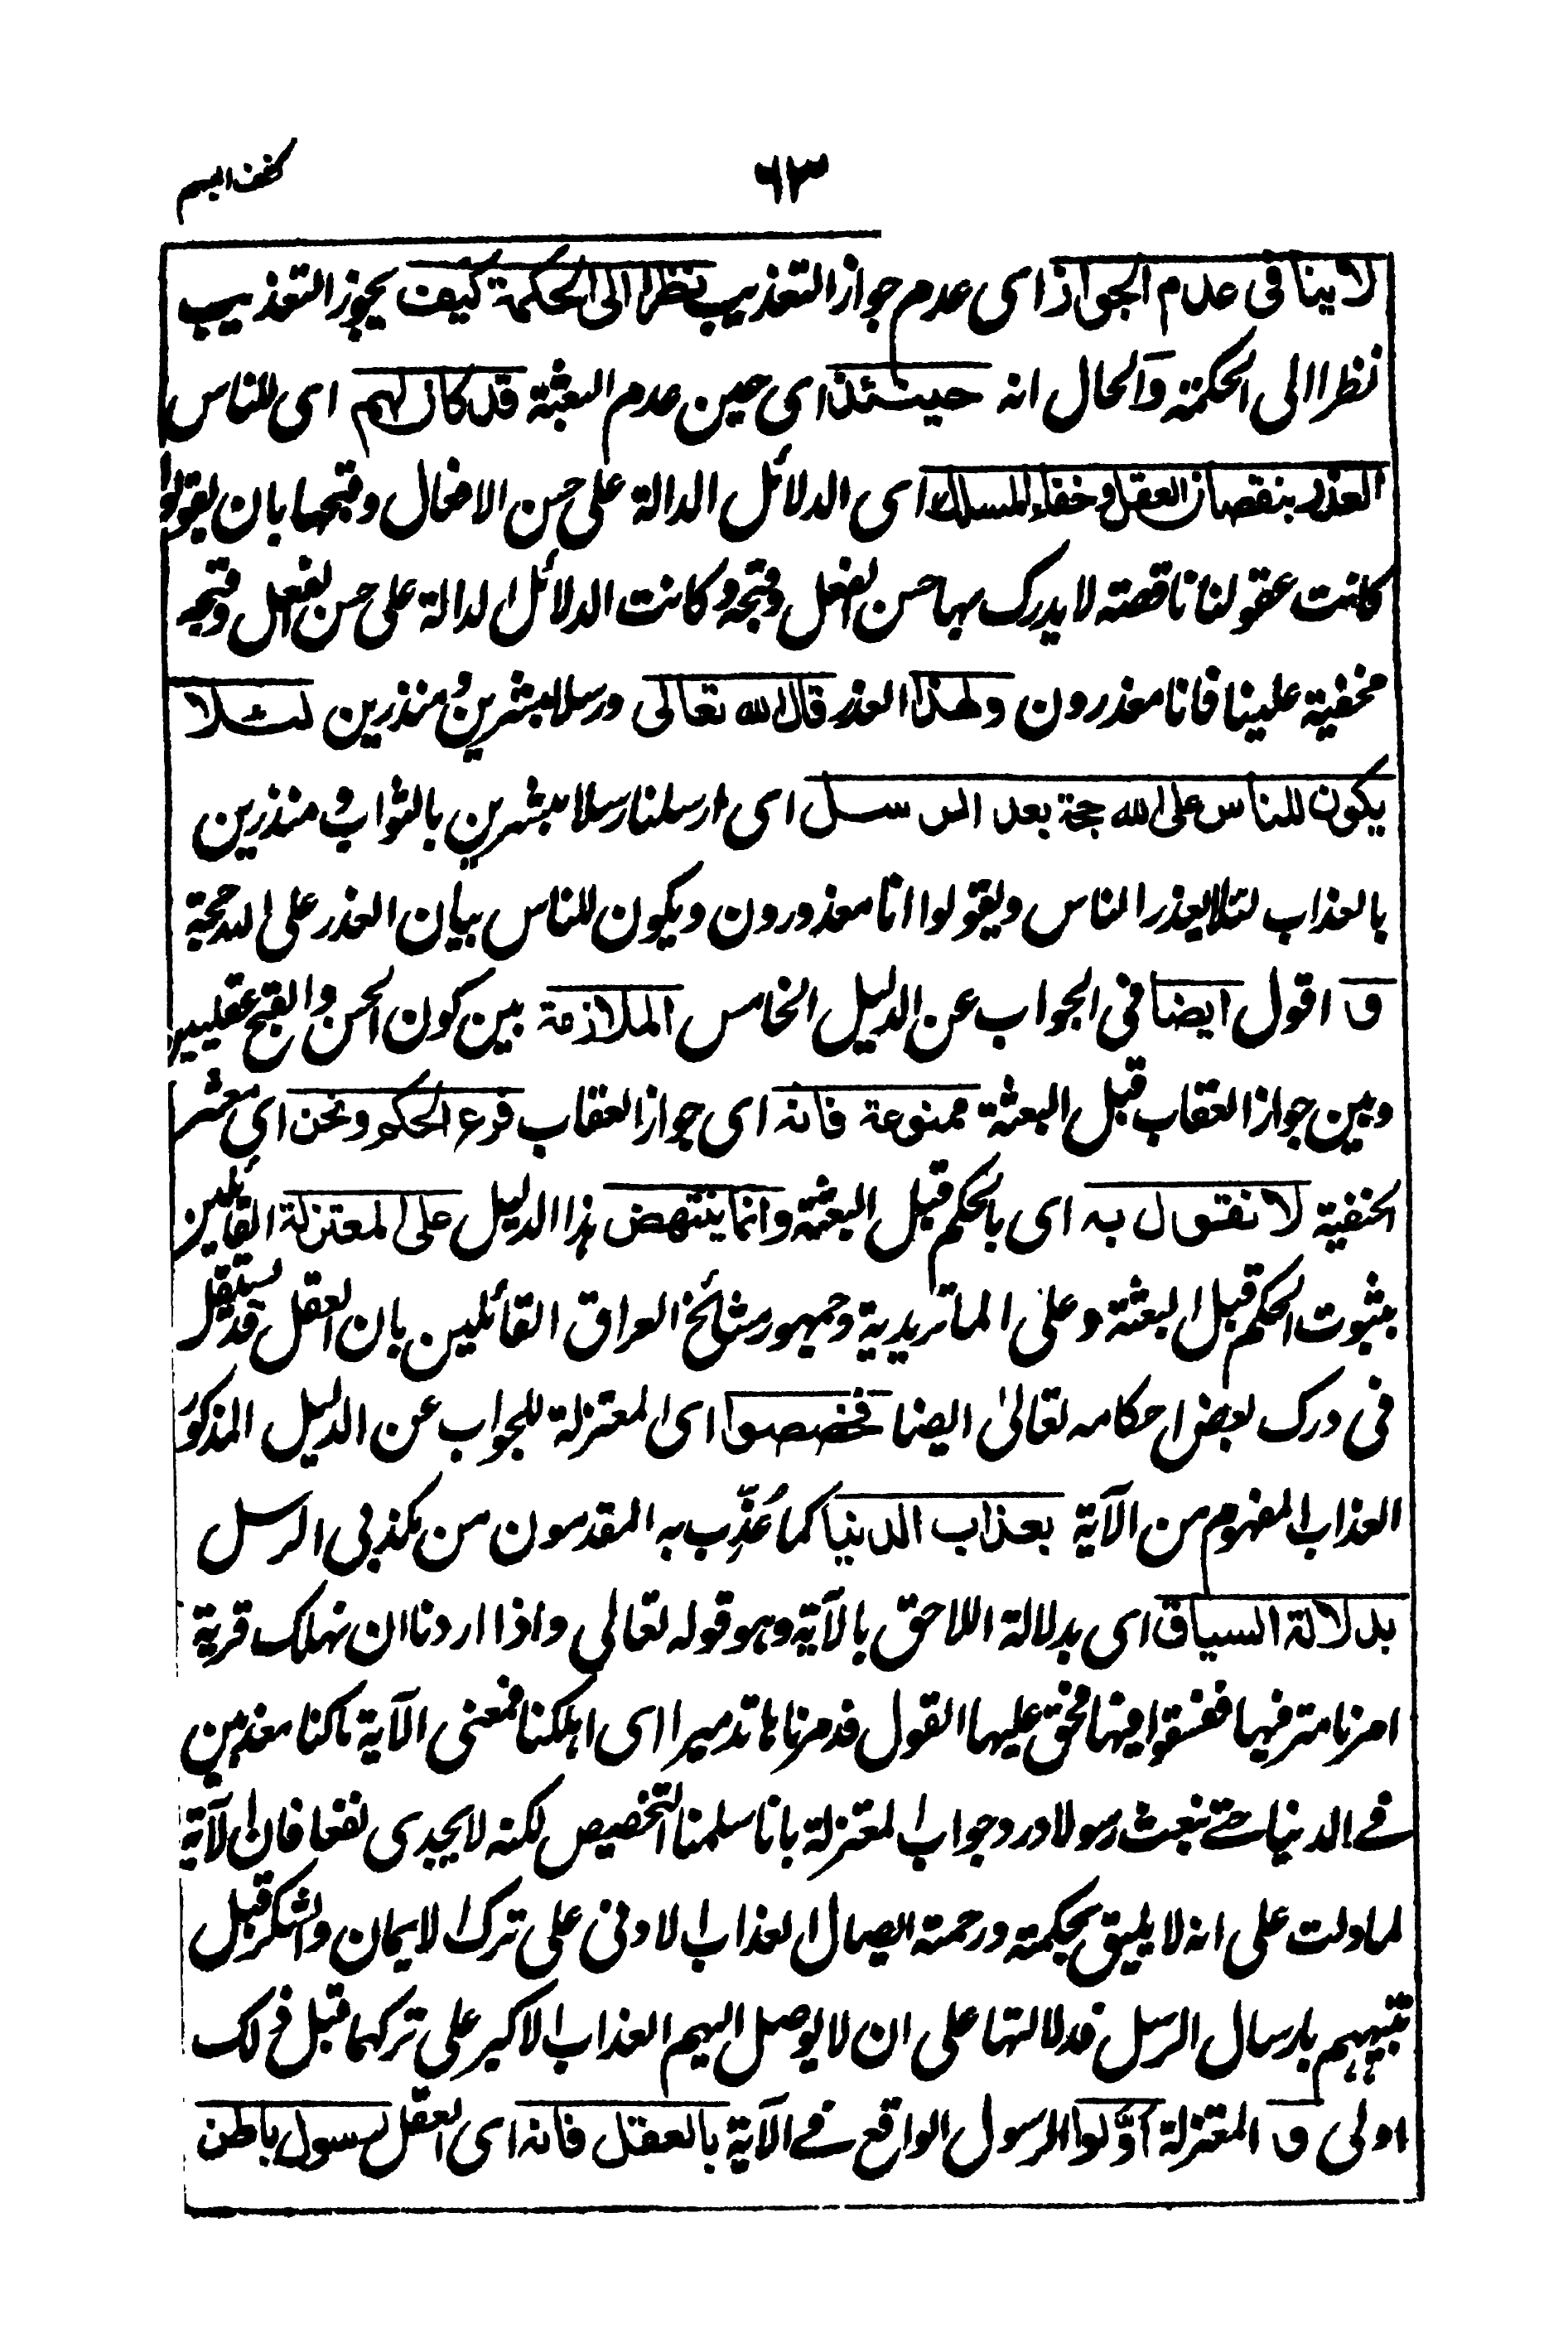 ٦٣
كشف المبهم
لا ينافى عدم الجواز اى عدم جواز التعذيب نظرا الى الحكمة كيف يجوز التعذيب
نظرا الى الحكمة والحال انه حينئذ اى حين عدم البعثة قد كان لهم اى للناس
العذر بنقصان العقل وخفاء المسلك اى الدلائل الدالة على حسن الافعال وقبحها بان يقولوا
كانت عقولنا ناقصة لا يدرك بها حسن الفعل وقبحه وكانت الدلائل الدالة على حسن الفعل وقبحه
مخفية علينا فانا معذرون ولهذا العذر قال الله تعالى ورسلا مبشرين ومنذرين لئلا
يكون للناس على الله حجة بعد الرسل اى ارسلنا رسلا مبشرين بالثواب ومنذرين
بالعذاب لئلا يعذر الناس ويقولوا انا معذورون ويكون للناس بيان العذر على الله حجة
و اقول ايضا فى الجواب عن الدليل الخامس الملازمة بين كون الحسن والقبح عقليين
وبين جواز العقاب قبل البعثة ممنوعة فانه اى جواز العقاب فرع الحكم ونحن اى معشر
الحنفية لا نقول به اى بالحكم قبل البعثة وانما ينتهض هذا الدليل على المعتزلة القائلين
بثبوت الحكم قبل البعثة وعلى الماتريدية وجمهور مشائخ العراق القائلين بان العقل قد يستقل
فى درك بعض احكامه تعالىٰ ايضا فخصصوا اى المعتزلة للجواب عن الدليل المذكور
العذاب المفهوم من الآية بعذاب الدنيا كما عُذِّب به المقدمون من مكذبى الرسل
بدلالة السياق اى بدلالة اللاحق بالآية وهو قوله تعالى واذا اردنا ان نهلك قرية
امرنا مترفيها ففسقوا فيها فحق عليها القول فدمرناها تدميرا اى اهلكنا فمعنى الآية ما كنا معذبين
فے الدنيا حتے نبعث رسولا ورد جواب المعتزلة بانا سلمنا التخصيص لكنه لا يجدى نفعا فان الآية
لما دلت على انه لا يليق بحكمته ورحمته ايصال العذاب الادنى على ترك الايمان والشكر قبل
تنبيههم بارسال الرسل فدلالتها على ان لا يوصل اليهم العذاب الاكبر على تركهما قبل ذلك
اولى و المعتزلة اوّلوا الرسول الواقع فے الآية بالعقل فانه اى العقل رسول باطن